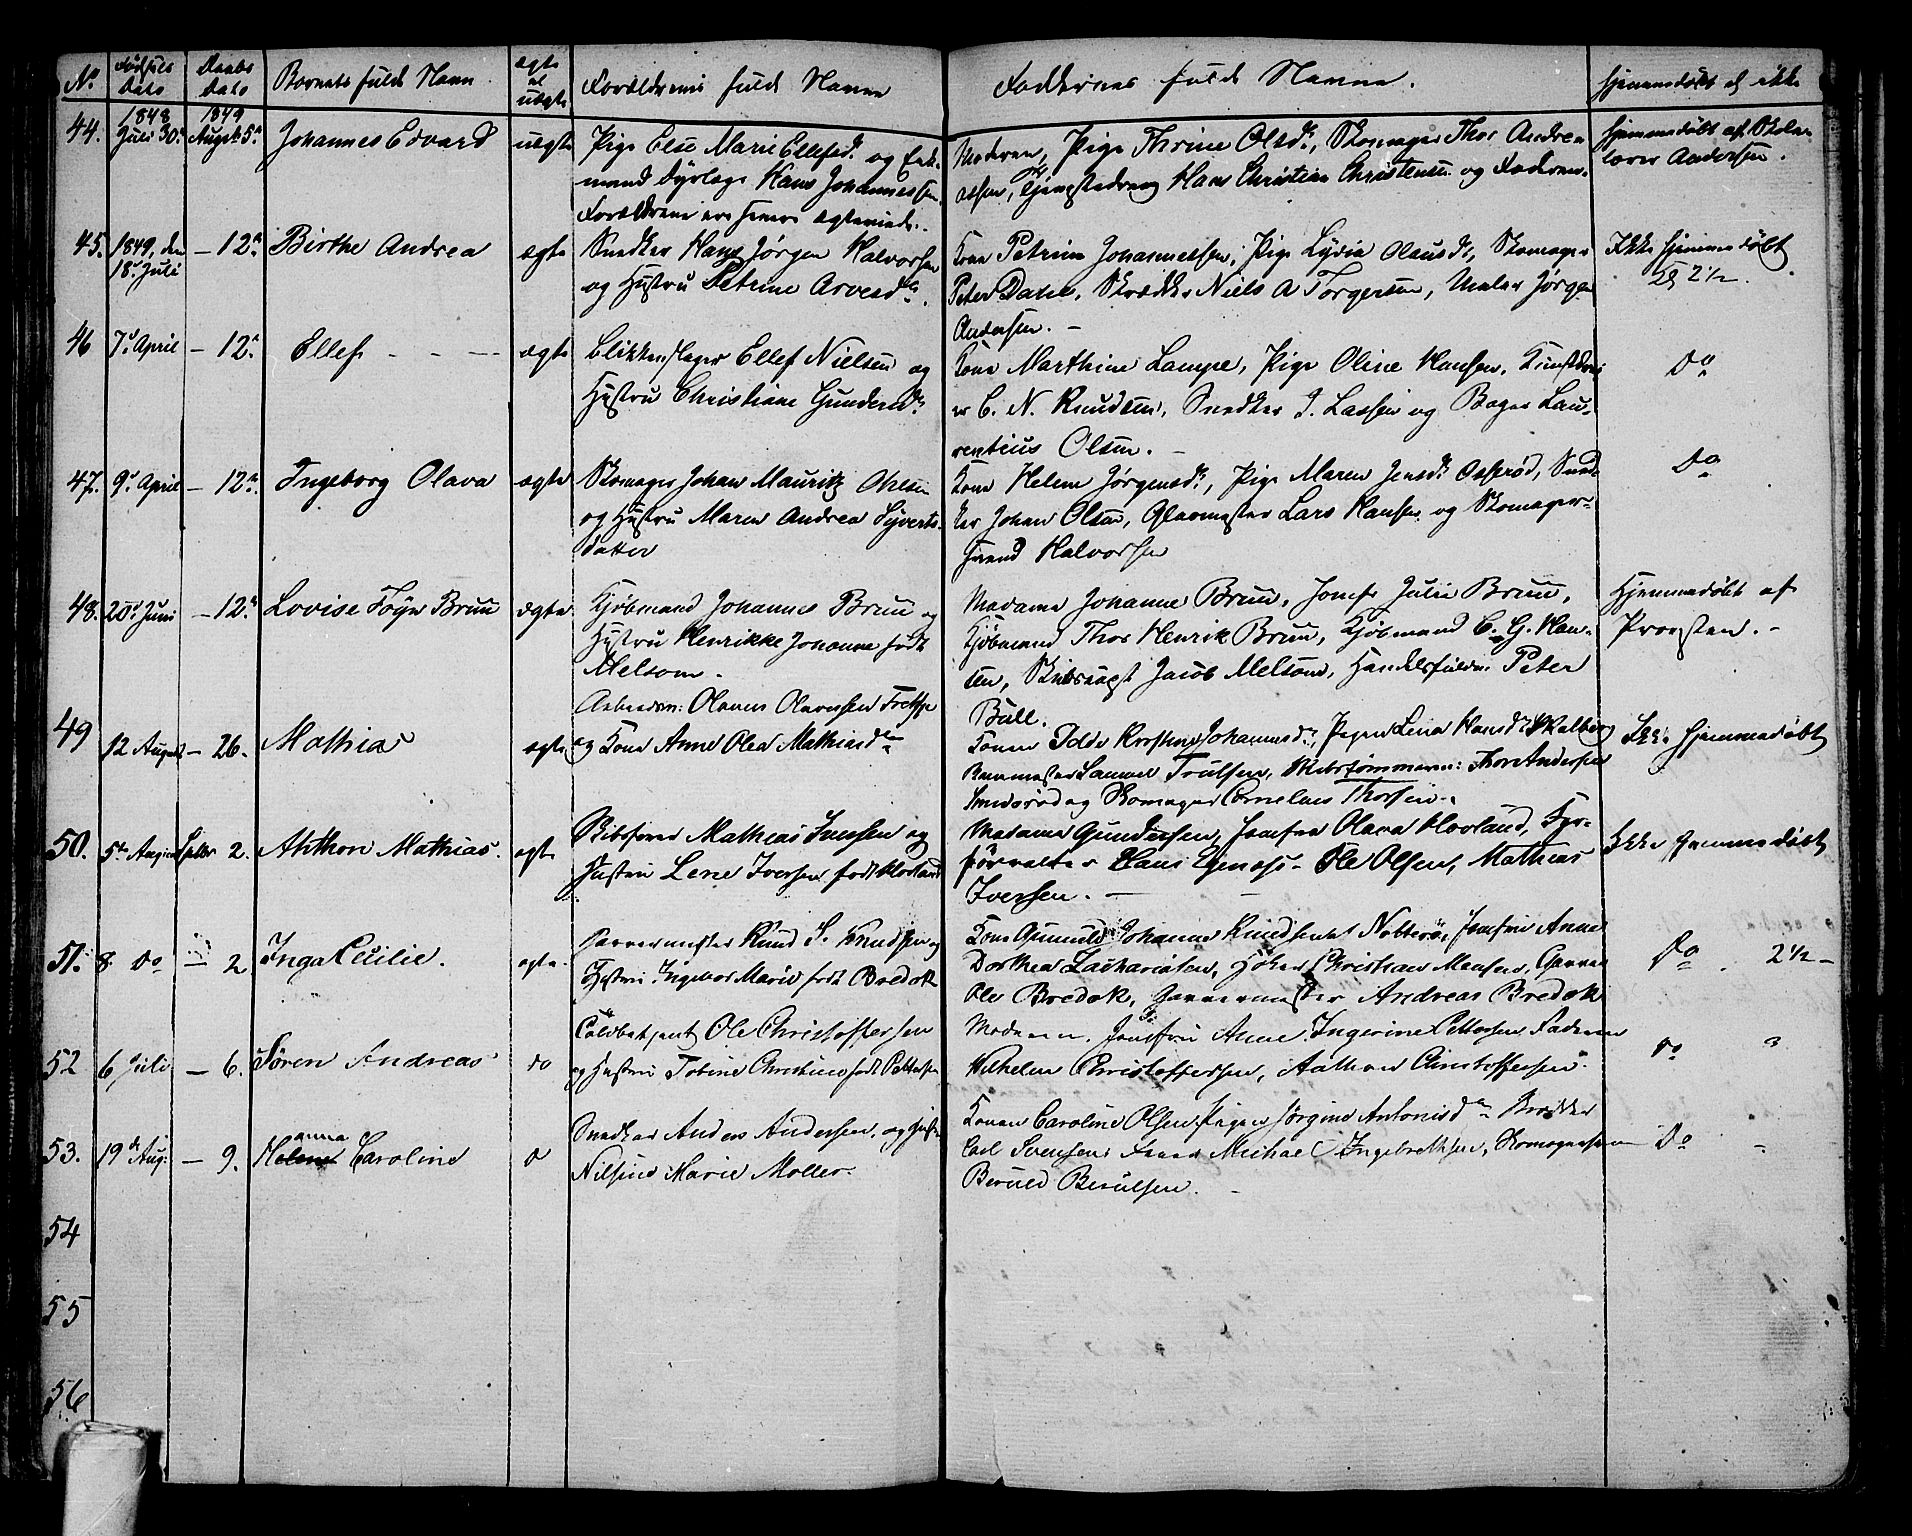 No Fødsels Dato Daabs Dato Barnets fulde Navn ægte el. uægte Forældrenes fulde Navne Faddernes fulde Navne. Hjemmedøbt el ikke
1848 1849
44. Juli 30. August 5. Johannes Edvard uægte Pige Else Marie Ellefsd. og Enkemand Hans Johannessen. Forældrene ere senere ægteviede. Moderen, Pige Thrine Olsd., Skomager Thor Andreassen, Tjenestedreng Hans Christian Christensen og Faderen. Hjemmedøbt af Skolelærer Andersen.
45. 1849, den 18. Juli – 12. Birthe Andrea ægte Snedker Hans Jørgen Halvorsen og Hustru Petrine Arvesd. Kone Petrine Johannessen, Pige Lydia Olausd., Skomager Peter Skrædder Niels A Torgersen, Maler Jørgen Andersen. – Ikke hjemmedøbt 2½.
46 7. April – 12. Ellef – – – ægte Blikkenslager Ellef Nielsen og Hustru Christiane Gundersd. Kone Marthine Lampe, Pige Oline Hansen, C. N. Knudsen, Snedker J. Lassen og Bager Laurentius Olsen. – Do
47. 9. April – 12. Ingeborg Olava ægte Skomager Johan Mauritz Ohlsen og Hustru Maren Andrea Syvertsdatter Kone Helene Jørgensd., Pige Maren Jensd. Snedker Johan Olsen, Glasmester Lars Hansen og Skomager Halvorsen Do
48. 20. Juni – 12. Lovise Føyn Bruun ægte Kjøbmand Johannes Bruun og Hustru Henrikke Johanne født Melsom. Madame Johanne Bruun, Jomf. Julie Bruun, Kjøbmand Thor Henrik Bruun, Kjøbmand C. G. Hansen, Jacob Melsom, Peter Bull. Hjemmedøbt af Provsten. –
49 12 August – 26. Mathias ægte Olaves Olavessen og Kone Anne Olea Mathiasd. Konen Johannesd., Pigen Lena Hansd. Samuel Trulsen, Thore Andersen og Skomager Cornelius Thorsen. Ikke hjemmedøbt
50. 5te August Septbr 2. Anthon Mathias. ægte Skibsfører Mathias Iversen og Hustru Lene Iversen født Hovland Madame Gundersen, Jomfru Olava Hovland, Fyrforvalter Hans Ole Olsen, Mathias Iversen. – Ikke hjemmedøbt
51. 8. do – 2 Inga Cecilie. ægte Garvermester Knud S. Knudsen og Hustru Ingebor Marie født Bredok Kone Johanne Knudsen Nøtterø, Jomfru Anne Dorthea Zachariasen, Høker Christian Monsen, Garver Ole Bredok, Garvermester Andreas Bredok Do 2½ –
52 6 Juli – 6. Søren Andreas do Ole Christoffersen og Hustru Tobine Christine født Pettersen Moderen, Jomfru Anne Ingerine Pettersen Faderen Wilhelm Christoffersen, Christoffersen. do
53. 19de Aug: – 9. Helene anna Caroline do Snedker Anders Andersen og Hustru Nilsine Marie Moller. Konen Caroline Olsen, Pigen Jørgine Antonisd. Carl Svensen, Michael Ingebrethsen, Skomagersvend Berulsen. – Do –
54
55
56